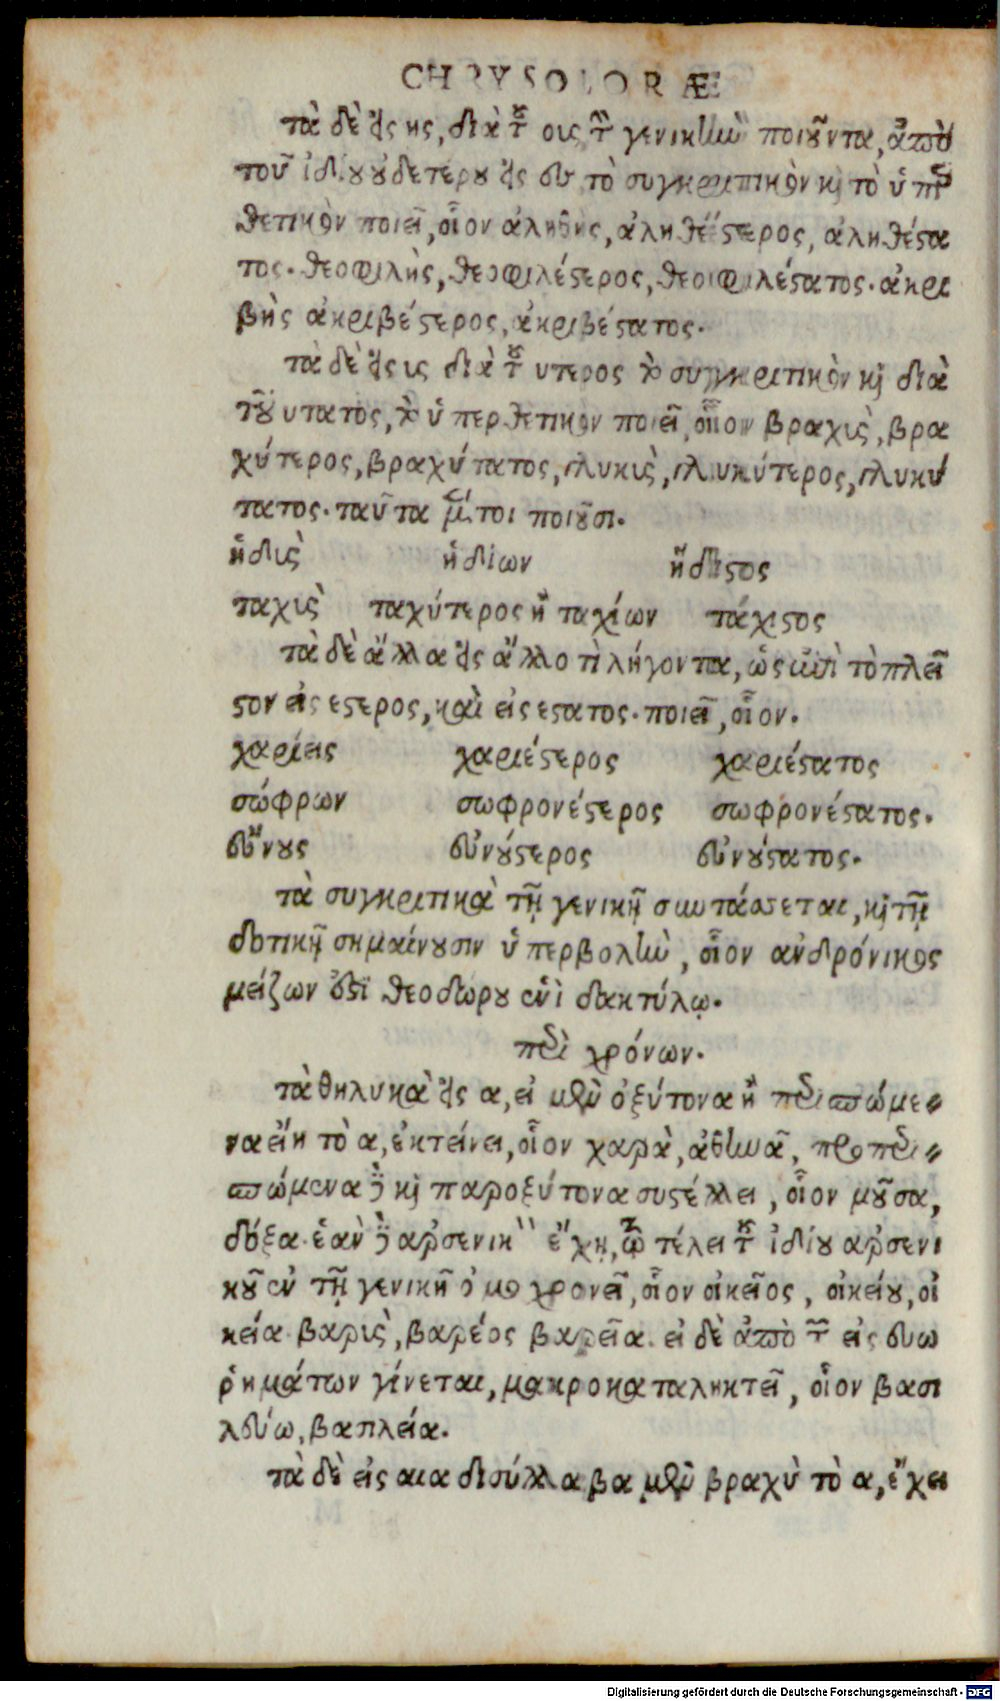 CHRYSOLORÆ
τὰ δὲ εἰς ης, διὰ τοῦ οις τὴν γενικὴν ποιοῦντα, ἀπὸ
τοῦ ἰδίου οὐδετέρου εἰς τὸ συγκριτικὸν καὶ τὸ ὑπερ
θετικὸν ποιεῖ, οἷον ἀληθης, ἀληθέστερος, ἀληθέστα
τος. θεοφιλὴς, θεοφιλέστερος, θεοφιλέστατος. ἀκρι
βὴς ἀκριβέστερος, ἀκριβέστατος.
τὰ δὲ εἰς ις διὰ τοῦ υτερος τὸ συγκριτικὸν καὶ διὰ
τοῦ υτατος, τὸ ὑπερθετικον ποιεῖ, οἷον βραχις, βρα
χύτερος, βραχύτατος, γλυκις, γλυκύτερος, γλυκύ
τατος. ταῦτα μέντοι ποιοῦσι.
ἡδις ἡδίων ἥδιστος
ταχις ταχύτερος ἢ ταχίων τάχιστος
τὰ δὲ ἄλλα εἰς ἄλλο τὶ λήγοντα, ὡς ἐπὶ τὸ πλεῖ
στον εἰς εστερος, καὶ εἰς εστατος. ποιεῖ, οἷον.
χαρίεις χαριέστερος χαριέστατος
σώφρων σωφρονέστερος σωφρονέστατος.
εὔνους εὐνούστερος εὐνούστατος.
τὰ συγκριτικὰ τῇ γενικῇ συντάσσεται, καὶ τῇ
δοτικῇ σημαίνουσιν ὑπερβολὴν, οἷον ανδρόνικος
μείζων ἐστὶ θεοδώρου ἑνὶ δακτύλῳ.
περὶ χρόνων.
τὰ θηλυκὰ εἰς α, εἰ μὲν ὀξύτονα ἢ περισπώμε⸗
να εἴη τὸ α, ἐκτείνει, οἷον χαρὰ, ἀθηνᾶ, προπερι⸗
σπώμενα δὲ καὶ παροξύτονα συστέλλει, οἷον μοῦσα,
δόξα. ἐὰν δὲ ἀρσενικὸν ἔχῃ, τῷ τέλει τοῦ ἰδίου ἀρσενι
κοῦ ἐν τῇ γενικῇ ὁμοχρονεῖ, οἷον οἰκεῖος, οἰκείου, οἰ
κεία. βαρις, βαρέος βαρεῖα. εἰ δὲ ἀπὸ τῶν εἰς ευω
ῥημάτων γίνεται, μακροκαταληκτεῖ, οἷον βασι
λεύω, βασιλεία.
τὰ δὲ εἰς αια δισύλλαβα μὲν βραχὺ τὸ α, ἔχει
Digitalisierung gefördert durch die Deutsche Forschungsgemeinschaft - DFG